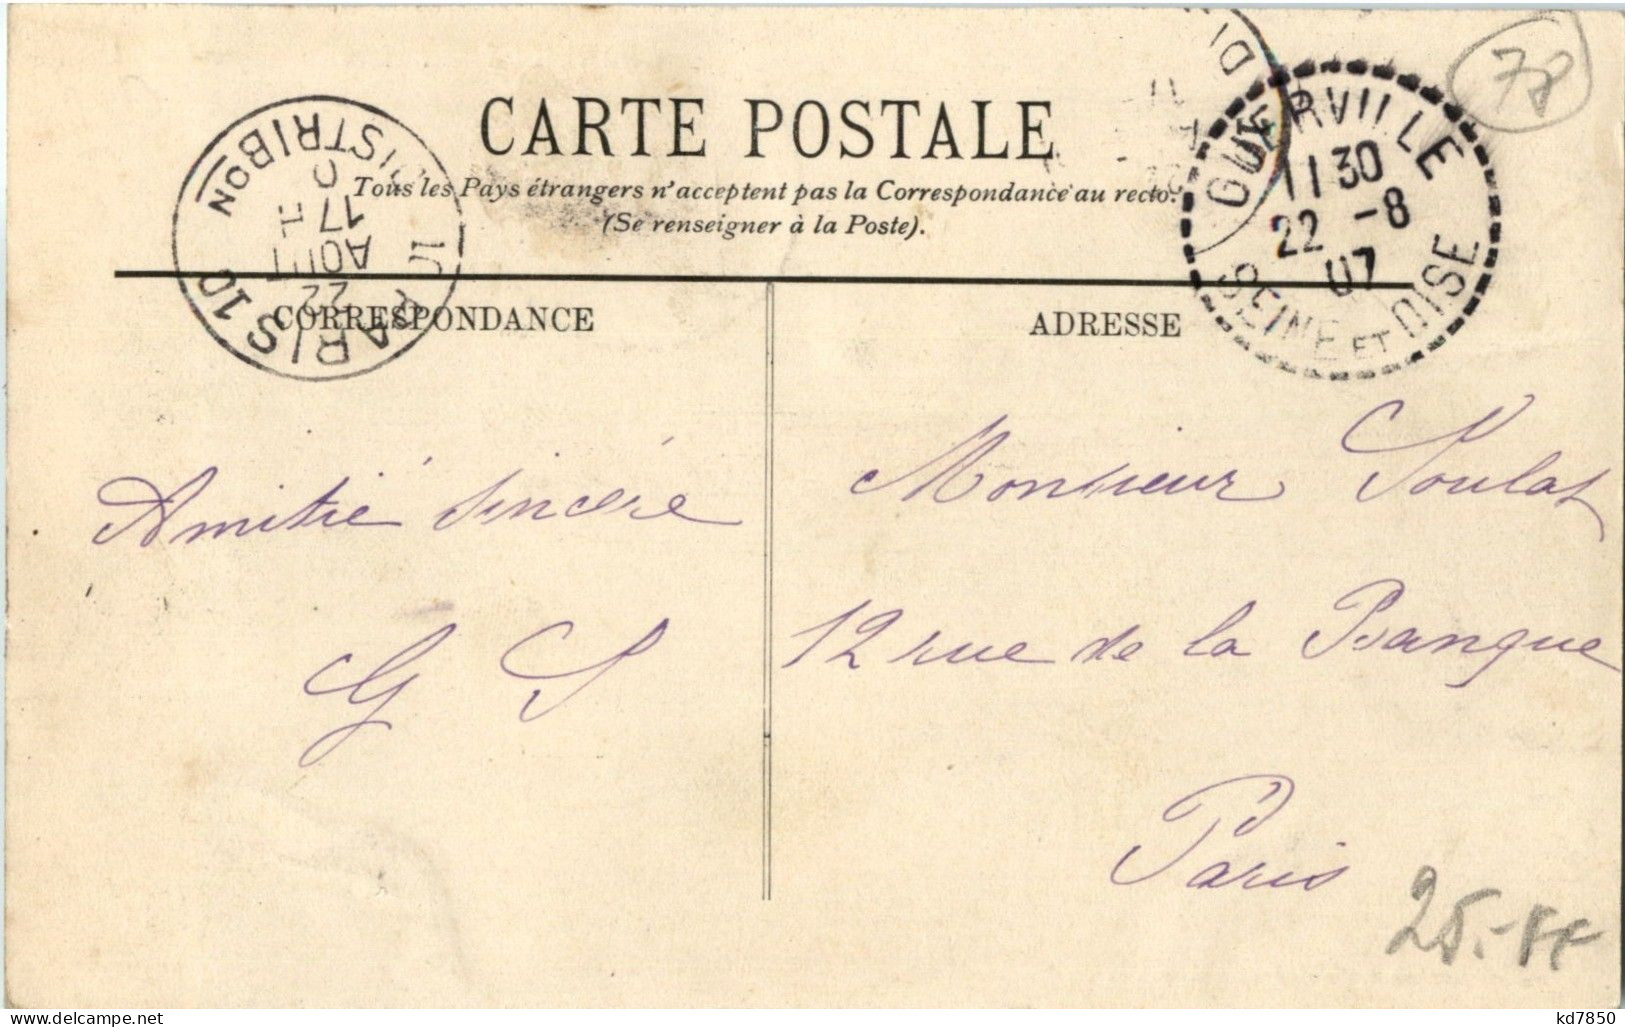 78
CARTE POSTALE
Tous les Pays étrangers n'acceptent pas la Correspondance au recto.
(Se renseigner à la Poste).
PARIS 10
DISTRIBON
17
AOUT
22
GUERVILLE
11 30
22 -8
07
SEINE ET OISE
CORRESPONDANCE
ADRESSE
Amitié sincère
G S
Monsieur Soulat
12 rue de la Banque
Paris
25.-
kd7850